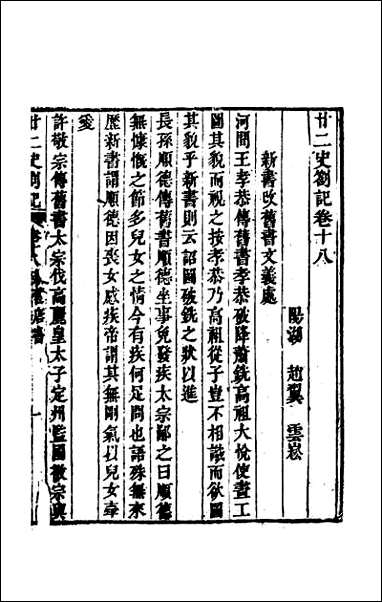 廿二史劄記卷十八
陽湖 趙翼 雲崧
新書改舊書文義處
河間王孝恭傳舊書孝恭破降蕭銑高祖大悅使畫工
圖其貌而視之按孝恭乃高祖從子豈不相識而欲圖
其貌乎新書則云詔圖破銑之狀以進
長孫順德傳舊書順德坐事免發疾太宗鄙之曰順德
無慷慨之節多兒女之情今有疾何足問也語殊無來
歷新書謂順德因喪女感疾帝謂其無剛氣以兒女牽
愛
許敬宗傳舊書太宗伐高麗皇太子定州監國敬宗與
廿二史劄記